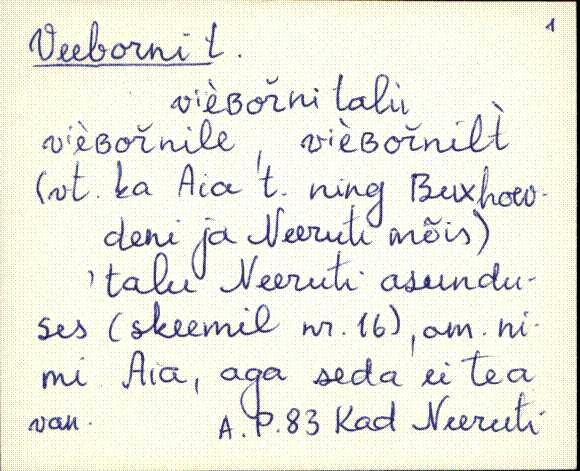 1
Veeborni t.
vièʙořni talu
vièʙořnile, vièʙořnilt̀
(vt. ka Aia t. ning Buxhoew-
deni ja Neeruti mõis)
talu Neeruti asundu-
ses (skeemil nr. 16), am. ni-
mi Aia, aga seda ei tea
van. A.P.83 Kad Neeruti